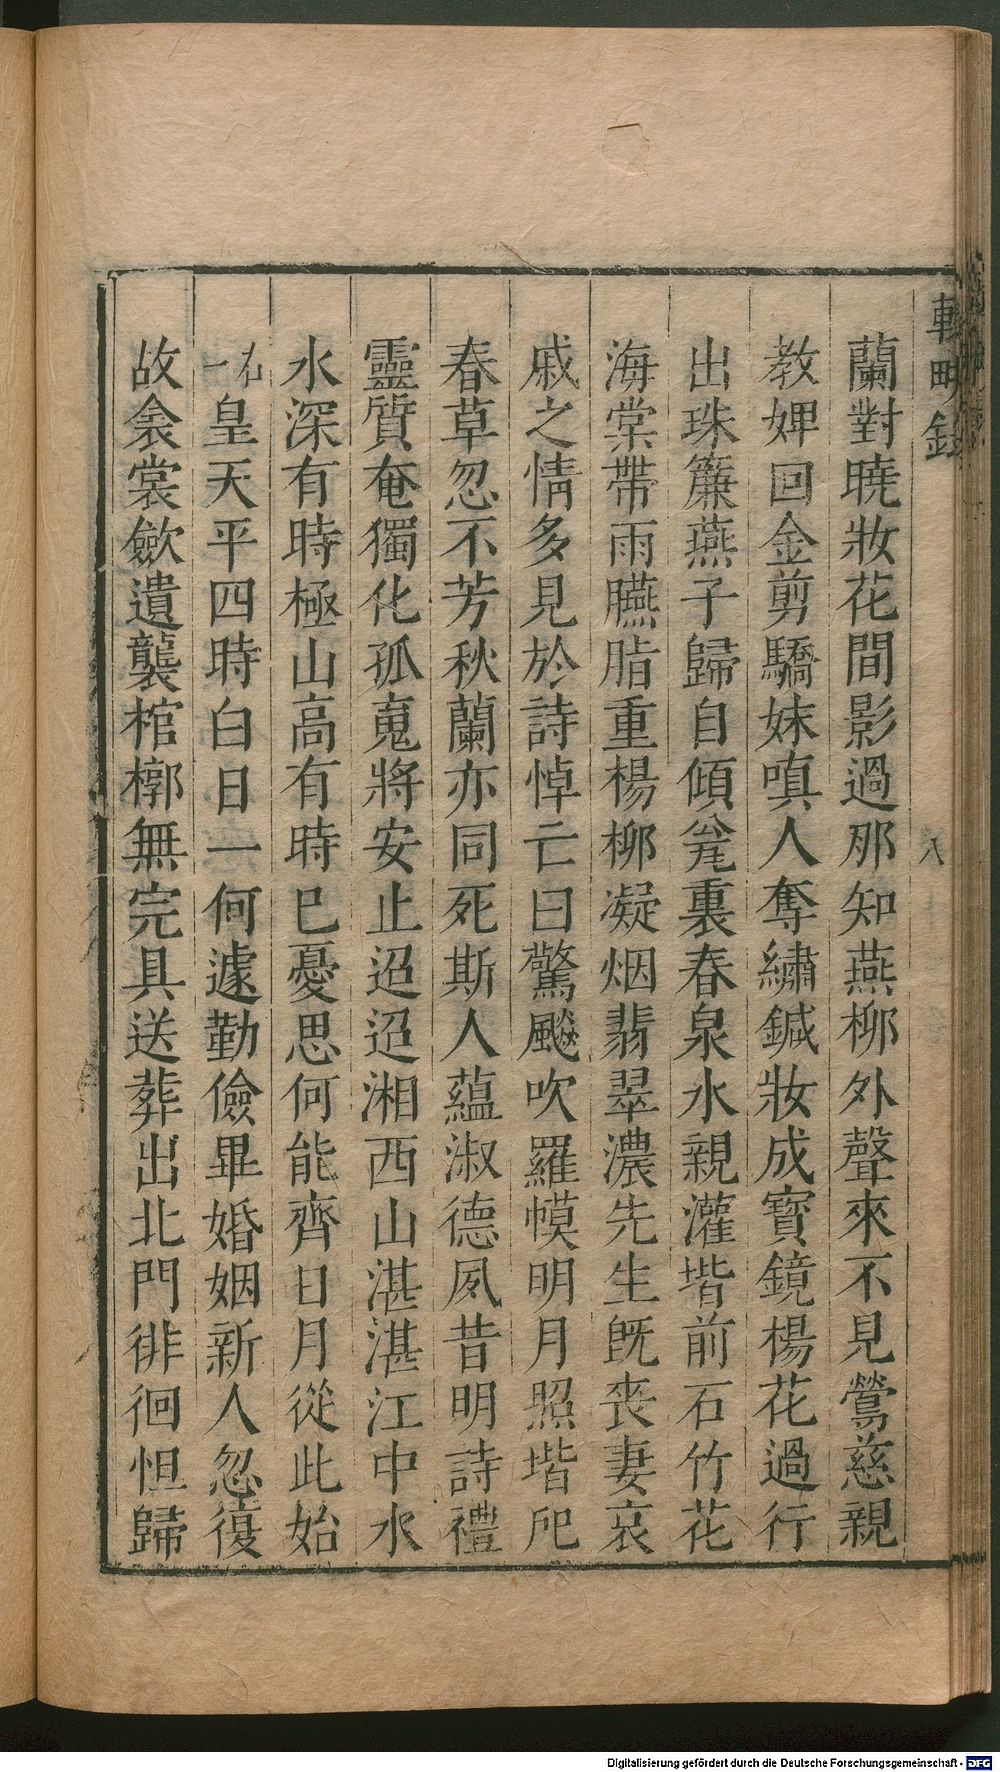 蘭對曉妝花間影過那知燕柳外聲來不見鶯慈親
教婢回金剪驕妹嗔人奪繡鍼妝成寶鏡楊花過行
出珠簾燕子歸自傾瓮裏春泉水親灌堦前石竹花
海棠帶雨臙脂重楊柳凝烟翡翠濃先生旣丧妻哀
戚之情多見於詩悼亡曰驚颷吹羅幙明月照堦戺
春草忽不芳秋蘭亦同死斯人蘊淑德夙昔明詩禮
靈質奄獨化孤䰟將安止迢迢湘西山湛湛江中水
水深有時極山高有時已憂思何能齊日月從此始
右一皇天平四時白日一何遽勤儉畢婚姻新人忽復
故衾裳斂遺襲棺槨無完具送葬出北門徘徊怛歸
八
Digitalisierung gefördert durch die Deutsche Forschungsgemeinschaft - DFG